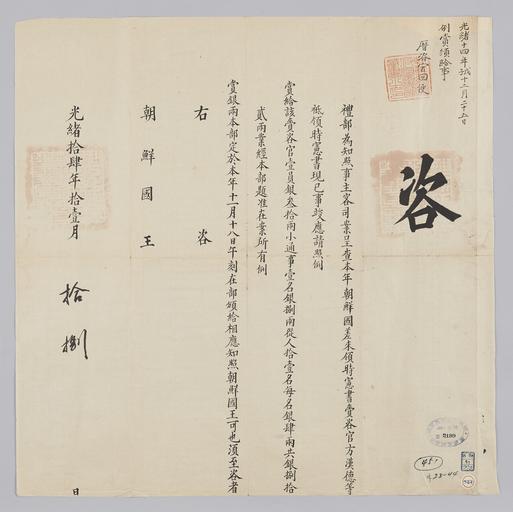 光緖十四年戊十二月二十五日
例賞領賂事
曆咨官回便
咨
禮部爲知照事主客司案呈查本年朝鮮國差來領時憲書賫咨官方漢德等
祇領時憲書現已事竣應請照例
賞給該賫咨官壹員銀叁拾兩小通事壹名銀捌兩從人拾壹名每名銀肆兩共銀捌拾
貳兩業經本部題准在案所有例
賞銀兩本部定於本年十一月十八日午刻在部頒給相應知照朝鮮國王可也須至咨者
右咨
朝鮮國王
光緖拾肆年拾壹月
拾捌
日
2189
451
28-44